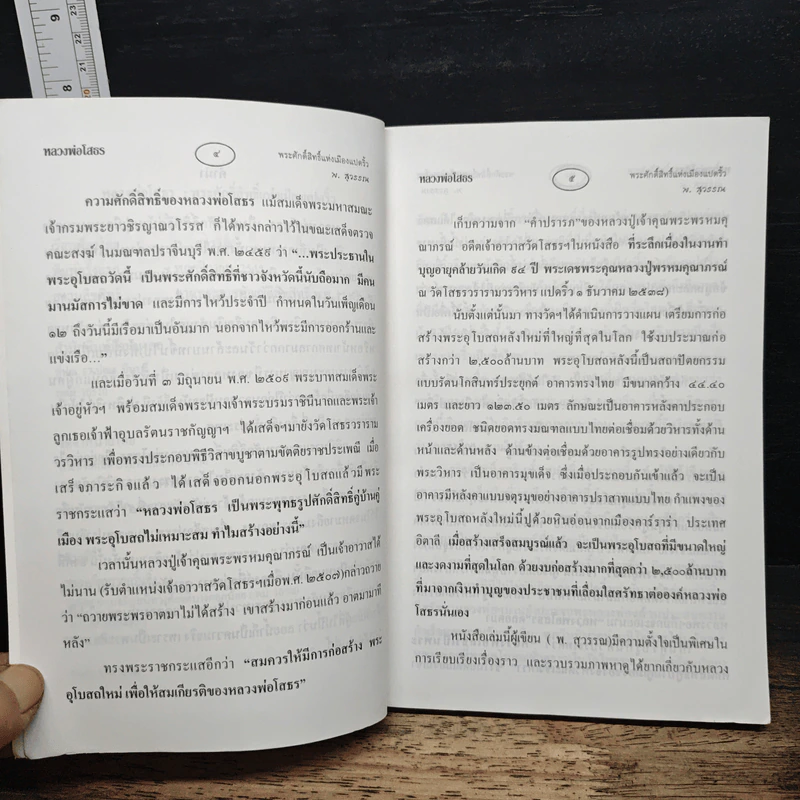 9
8
23
22
21
20
หลวงพ่อโสธร
๔
พระศักดิ์สิทธิ์แห่งเมืองแปดริ้ว
พ. สุวรรณ
ความศักดิ์สิทธิ์ของหลวงพ่อโสธร แม้สมเด็จพระมหาสมณะ
เจ้ากรมพระยาวชิรญาณวโรรส ก็ได้ทรงกล่าวไว้ในขณะเสด็จตรวจ
คณะสงฆ์ ในมณฑลปราจีนบุรี พ.ศ. ๒๔๕๙ ว่า “...พระประธานใน
พระอุโบสถวัดนี้ เป็นพระศักดิ์สิทธิ์ที่ชาวจังหวัดนี้นับถือมาก มีคน
มานมัสการไม่ขาด และมีการไหว้ประจำปี กำหนดในวันเพ็ญเดือน
๑๒ ถึงวันนี้มีเรือมาเป็นอันมาก นอกจากไหว้พระมีการออกร้านและ
แข่งเรือ...”
และเมื่อวันที่ ๓ มิถุนายน พ.ศ. ๒๕๐๙ พระบาทสมเด็จพระ
เจ้าอยู่หัวฯ พร้อมสมเด็จพระนางเจ้าพระบรมราชินีนาถและพระเจ้า
ลูกเธอเจ้าฟ้าอุบลรัตนราชกัญญาฯ ได้เสด็จฯมายังวัดโสธรวราราม
วรวิหาร เพื่อทรงประกอบพิธีวิสาขบูชาตามขัตติยราชประเพณี เมื่อ
เสร็จภาระกิจแล้ว ได้เสด็จออกนอกพระอุโบสถแล้วมีพระ
ราชกระแสว่า “หลวงพ่อโสธร เป็นพระพุทธรูปศักดิ์สิทธิ์คู่บ้านคู่
เมือง พระอุโบสถไม่เหมาะสม ทำไมสร้างอย่างนี้”
เวลานั้นหลวงปู่เจ้าคุณพระพรหมคุณาภรณ์ เป็นเจ้าอาวาสได้
ไม่นาน (รับตำแหน่งเจ้าอาวาสวัดโสธรฯเมื่อพ.ศ. ๒๕๐๗)กล่าวถวาย
ว่า “ถวายพระพรอาตมาไม่ได้สร้าง เขาสร้างมาก่อนแล้ว อาตมามาที
หลัง”
ทรงพระราชกระแสอีกว่า “สมควรให้มีการก่อสร้าง พระ
อุโบสถใหม่ เพื่อให้สมเกียรติของหลวงพ่อโสธร”
หลวงพ่อโสธร
๕
พระศักดิ์สิทธิ์แห่งเมืองแปดริ้ว
พ. สุวรรณ
เก็บความจาก “คำปรารภ”ของหลวงปู่เจ้าคุณพระพรหมคุ
ณาภรณ์ อดีตเจ้าอาวาสวัดโสธรฯในหนังสือ ที่ระลึกเนื่องในงานทำ
บุญอายุคล้ายวันเกิด ๙๔ ปี พระเดชพระคุณหลวงปู่พรหมคุณาภรณ์
ณ วัดโสธรวรารามวรวิหาร แปดริ้ว ๑ ธันวาคม ๒๕๓๘)
นับตั้งแต่นั้นมา ทางวัดฯได้ดำเนินการวางแผน เตรียมการก่อ
สร้างพระอุโบสถหลังใหม่ที่ใหญ่ที่สุดในโลก ใช้งบประมาณก่อ
สร้างกว่า ๒,๕๐๐ล้านบาท พระอุโบสถหลังนี้เป็นสถาปัตยกรรม
แบบรัตนโกสินทร์ประยุกต์ อาคารทรงไทย มีขนาดกว้าง ๔๔.๔๐
เมตร และยาว ๑๒๓.๕๐ เมตร ลักษณะเป็นอาคารหลังคาประกอบ
เครื่องยอด ชนิดยอดทรงมณฑลแบบไทยต่อเชื่อมด้วยวิหารทั้งด้าน
หน้าและด้านหลัง ด้านข้างต่อเชื่อมด้วยอาคารรูปทรงอย่างเดียวกับ
พระวิหาร เป็นอาคารมุขเด็จ ซึ่งเมื่อประกอบกันเข้าแล้ว จะเป็น
อาคารมีหลังคาแบบจตุรมุขอย่างอาคารปราสาทแบบไทย กำแพงของ
พระอุโบสถหลังใหม่นี้ปูด้วยหินอ่อนจากเมืองคาร์ราร่า ประเทศ
อิตาลี เมื่อสร้างเสร็จสมบูรณ์แล้ว จะเป็นพระอุโบสถที่มีขนาดใหญ่
และงดงามที่สุดในโลก ด้วยงบก่อสร้างมากที่สุดกว่า ๒,๕๐๐ล้านบาท
ที่มาจากเงินทำบุญของประชาชนที่เลื่อมใสศรัทธาต่อองค์หลวงพ่อ
โสธรนั่นเอง
หนังสือเล่มนี้ผู้เขียน ( พ. สุวรรณ)มีความตั้งใจเป็นพิเศษใน
การเรียบเรียงเรื่องราว และรวบรวมภาพหาดูได้ยากเกี่ยวกับหลวง